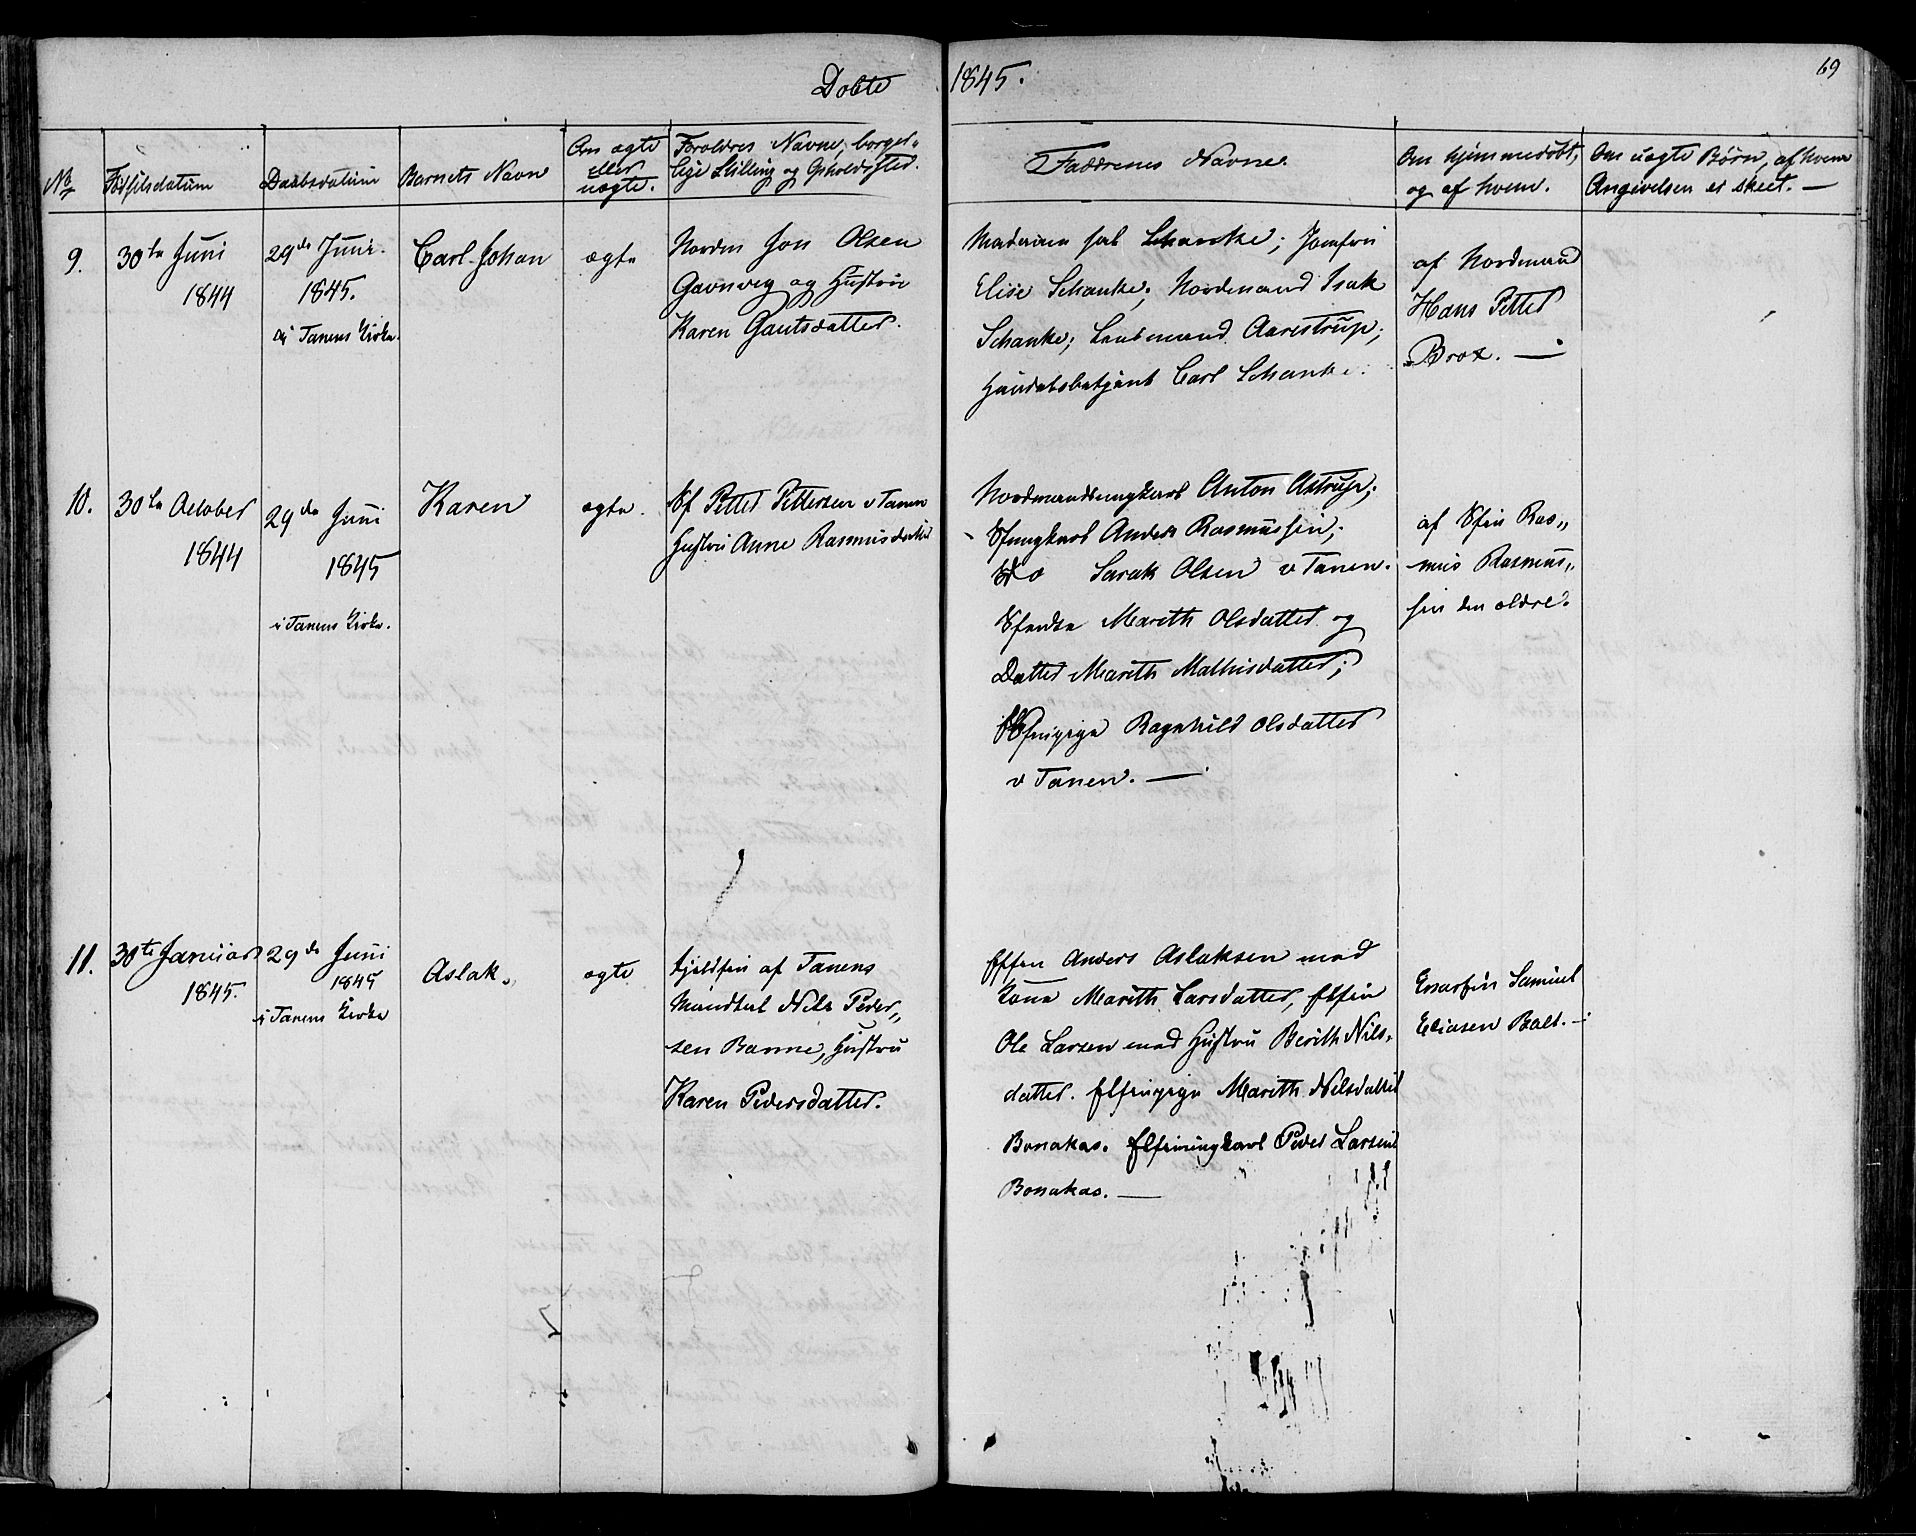 Døbte 1845.
69
No
Fødselsdatum
Daabsdatum
Barnets Navn
Om ægte
eller
uægte.
Foraldres Navne, borger„
lige Stilling og Opholdssted.
Faddrenes Navne.
Om hjemmedøbt,
og af hvem.
Om uægte Børn, af hvem
Angivelsen er skeet. —
9.
30te Juni
1844
29de Juni
1845.
i Tanens Kirke.
Carl Johan
ægte
Norden Jon Olsen
Gavnveg og Hustru
Karen Gautsdatter.
Madamme Schancke; Jomfru
Elise Schanke; Nordmand Isak
Schanke; Lensmand Aarestrup;
Handelsbetjent Carl Schanke.
af Nordmand
Hans Petter
Brox. —
10.
30te October
1844
29de Juni
1845
i Tanens Kirke.
Karen
ægte.
Sf Petter Pettersen v Tanen
Hustru Anne Rasmusdatter
Nordmandsungkarl Anton Astrup;
Sfungkarl Anders Rasmussen;
do Sarak Olsen v Tanen.
Sfenke Marith Olsdatter og
Datter Marith Mathisdatter;
Sfinpige Ragnhild Olsdatter
v Tanen. —
af Sfin Ras„
mus Rasmus„
sen den ældre.
11.
30te Januar
1845.
29de Juni
1845
i Tanens Kirke
Aslak.
ægte
Fjeldfin af Tanens
Mandtal Nils Peder„
sen Banne, Hustru
Karen Pedersdatter.
Elffin Anders Aslaksen med
Kone Marith Larsdatter, Elffin
Ole Larsen med Hustru Berith Nils„
datter. Elfinpige Marith Nilsdatter
Bonakas. Elfinungkarl Peder Larsen
Bonakas. —
Enarfin Samuel
Eliasen Balt. —